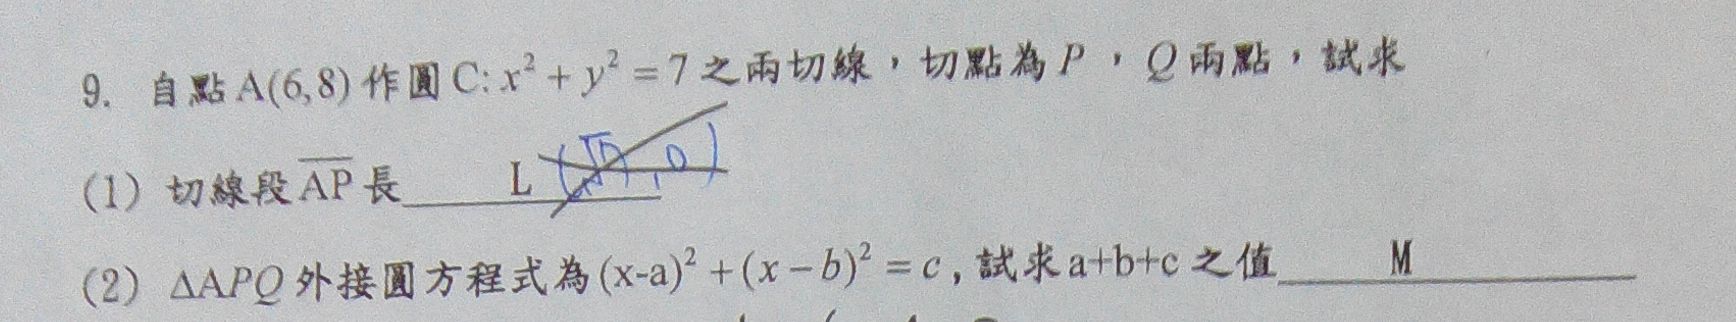 9. 自點A(6,8)作圓C: x² + y² = 7之兩切線,切點為P,Q兩點,試求
(1) 切線段AP長 L (√7, 0)
(2) ΔAPQ外接圓方程式為(x-a)² + (x − b)² = c,試求a+b+c之值 M